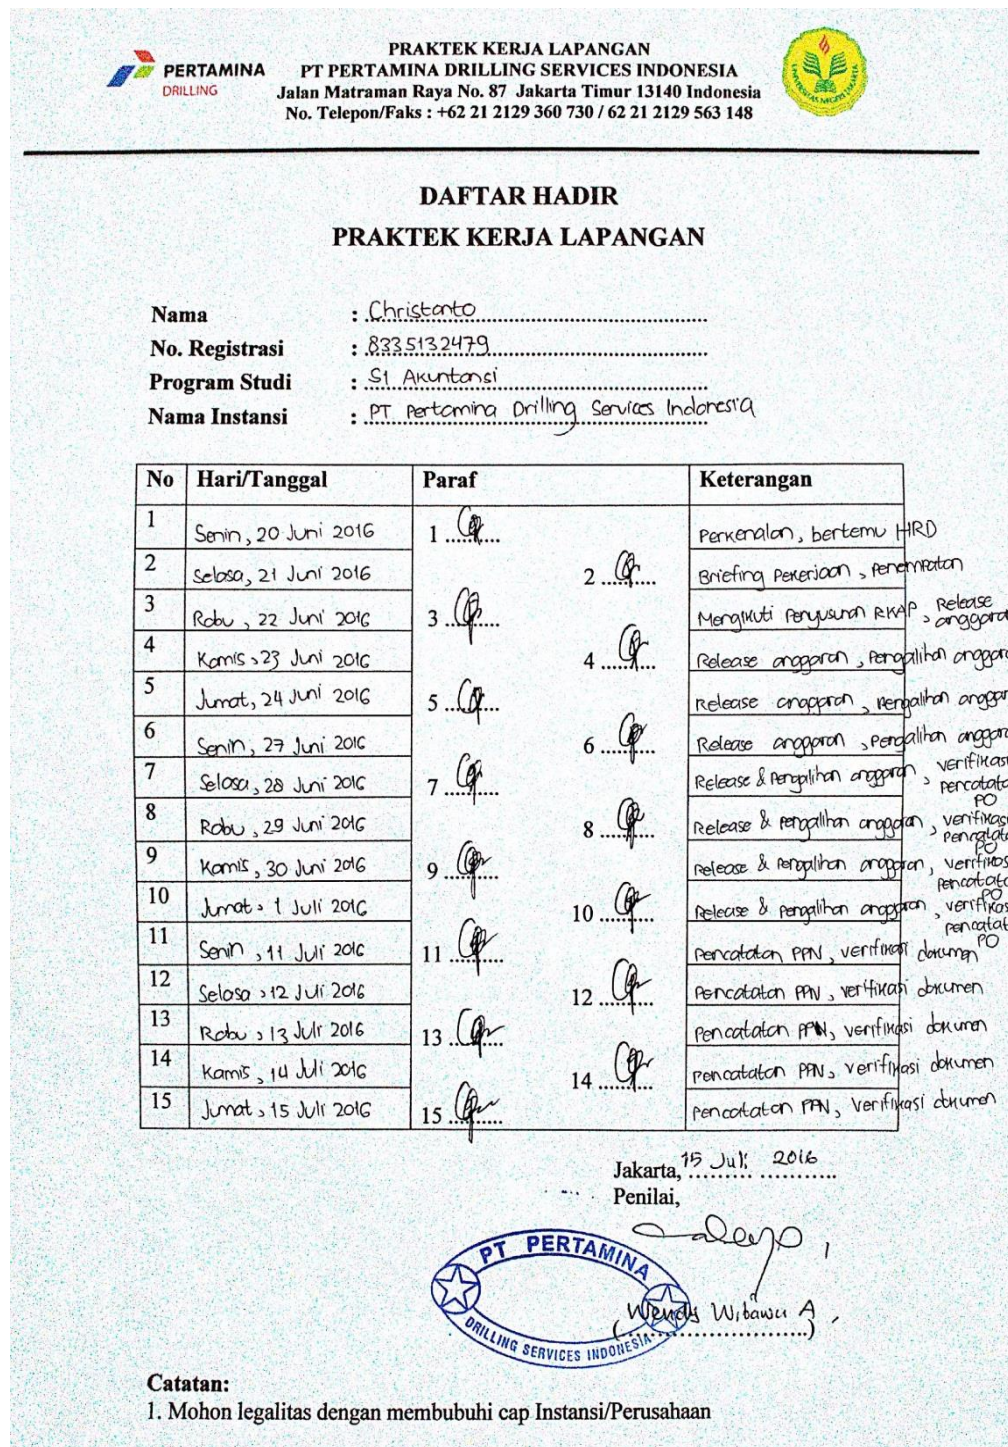 PERTAMINA
DRILLING
PRAKTEK KERJA LAPANGAN
PT PERTAMINA DRILLING SERVICES INDONESIA
Jalan Matraman Raya No. 87 Jakarta Timur 13140 Indonesia
No. Telepon/Faks : +62 21 2129 360 730 / 62 21 2129 563 148
UNIVERSITAS NEGERI JAKARTA
DAFTAR HADIR
PRAKTEK KERJA LAPANGAN
Nama : Christanto
No. Registrasi : 8335132479
Program Studi : S1 Akuntansi
Nama Instansi : PT Pertamina Drilling Services Indonesia
No Hari/Tanggal Paraf Keterangan
1 Senin, 20 Juni 2016 1 Perkenalan, bertemu HRD
2 Selasa, 21 Juni 2016 2 Briefing Pekerjaan, Penempatan
3 Rabu, 22 Juni 2016 3 Mengikuti Penyusunan RKAP, Release
4 Kamis, 23 Juni 2016 4 Release anggaran, Pengalihan
5 Jumat, 24 Juni 2016 5 Release anggaran, Pengalihan
6 Senin, 27 Juni 2016 6 Release anggaran, Pengalihan
7 Selasa, 28 Juni 2016 7 Release & Pengalihan anggaran,
PO
8 Rabu, 29 Juni 2016 8 Release & Pengalihan anggaran,
PO
9 Kamis, 30 Juni 2016 9 Release & Pengalihan anggaran,
PO
10 Jumat, 1 Juli 2016 10 Release & Pengalihan anggaran,
PO
11 Senin, 11 Juli 2016 11 Pencatatan PPN, verifikasi dokumen
12 Selasa, 12 Juli 2016 12 Pencatatan PPN, verifikasi dokumen
13 Rabu, 13 Juli 2016 13 Pencatatan PPN, verifikasi dokumen
14 Kamis, 14 Juli 2016 14 Pencatatan PPN, verifikasi dokumen
15 Jumat, 15 Juli 2016 15 Pencatatan PPN, Verifikasi dokumen
Jakarta, 15 Juli 2016
Penilai,
PT PERTAMINA
DRILLING SERVICES INDONESIA
(Wendy Wibawa A)
Catatan:
1. Mohon legalitas dengan membubuhi cap Instansi/Perusahaan